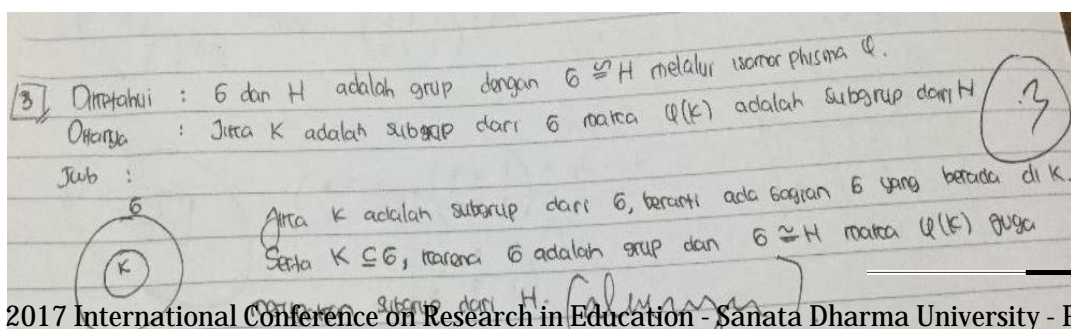 3 Diketahui : G dan H adalah grup dengan G ≅ H melalui isomorphisma φ.
Ditanya : Jika K adalah subgrup dari G maka φ(K) adalah subgrup dari H
3
Jwb :
G
K
Jika K adalah subgrup dari G, berarti ada bagian G yang berada di K.
Serta K ⊆ G, karena G adalah grup dan G ≅ H maka φ(K) juga
merupakan subgrup dari H.
2017 International Conference on Research in Education - Sanata Dharma University - P